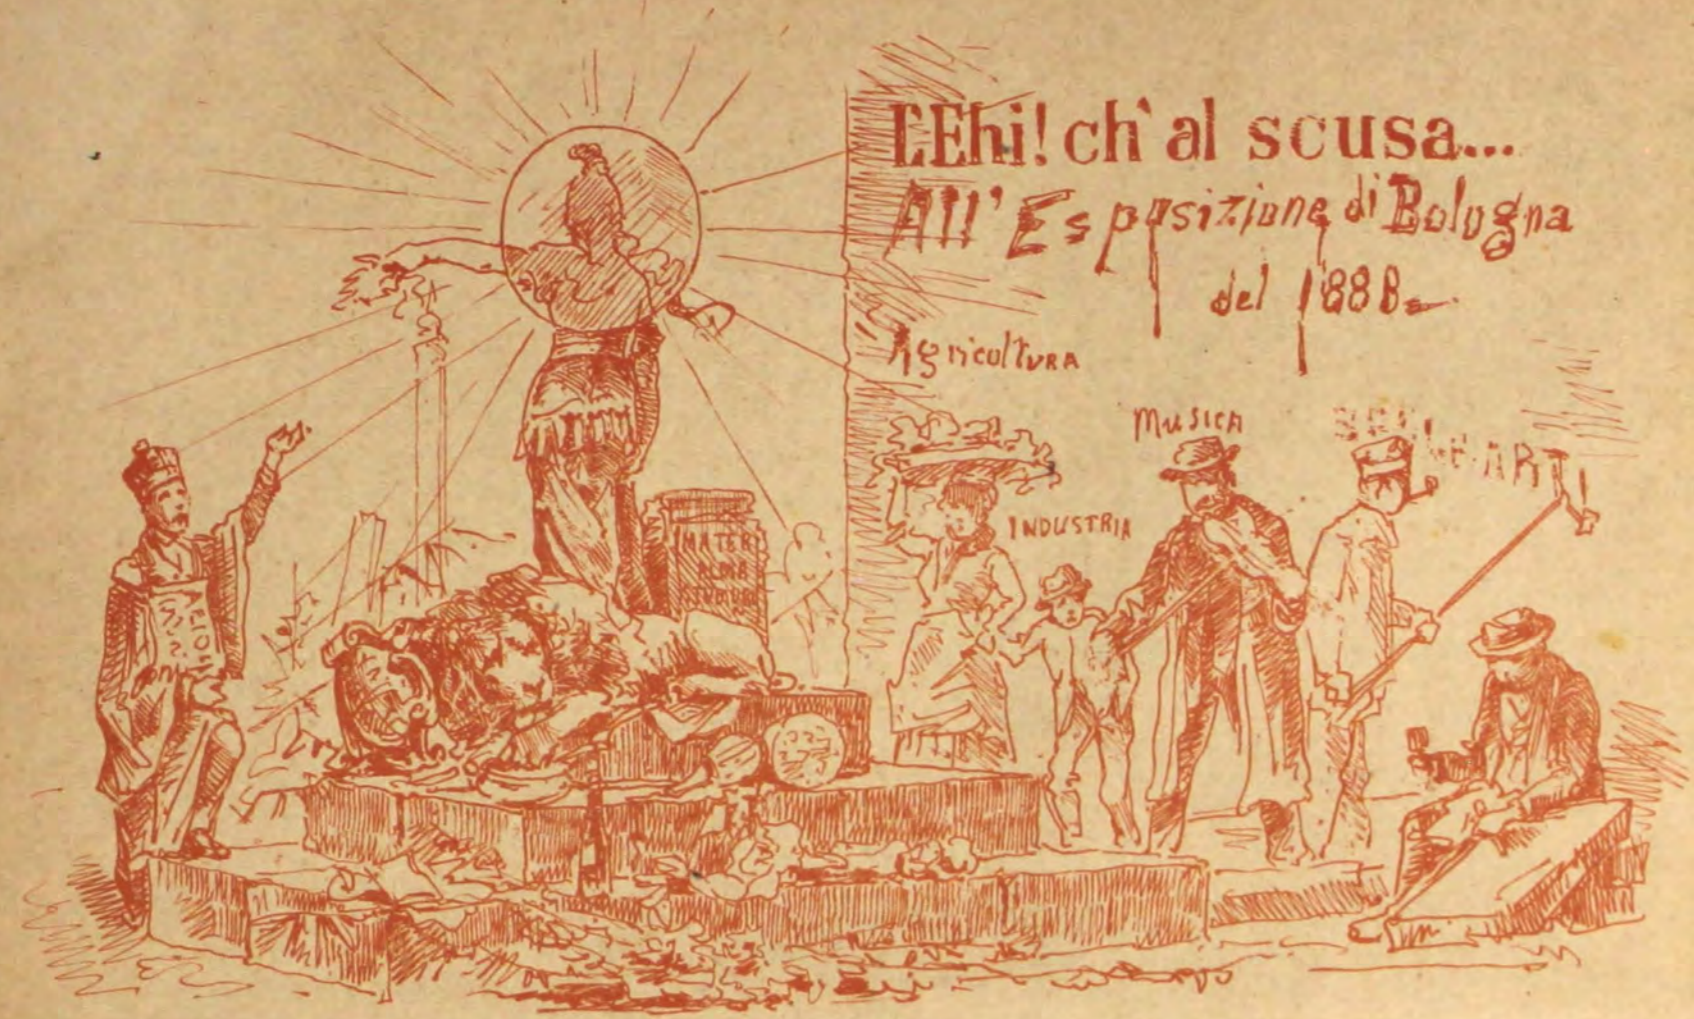 L'Ehi! ch' al scusa...
All' Esposizione di Bologna
del 1888.
Agricoltura
MUSICA
BELLE ARTI
INDUSTRIA
MATER
ALMA
STUDIORUM